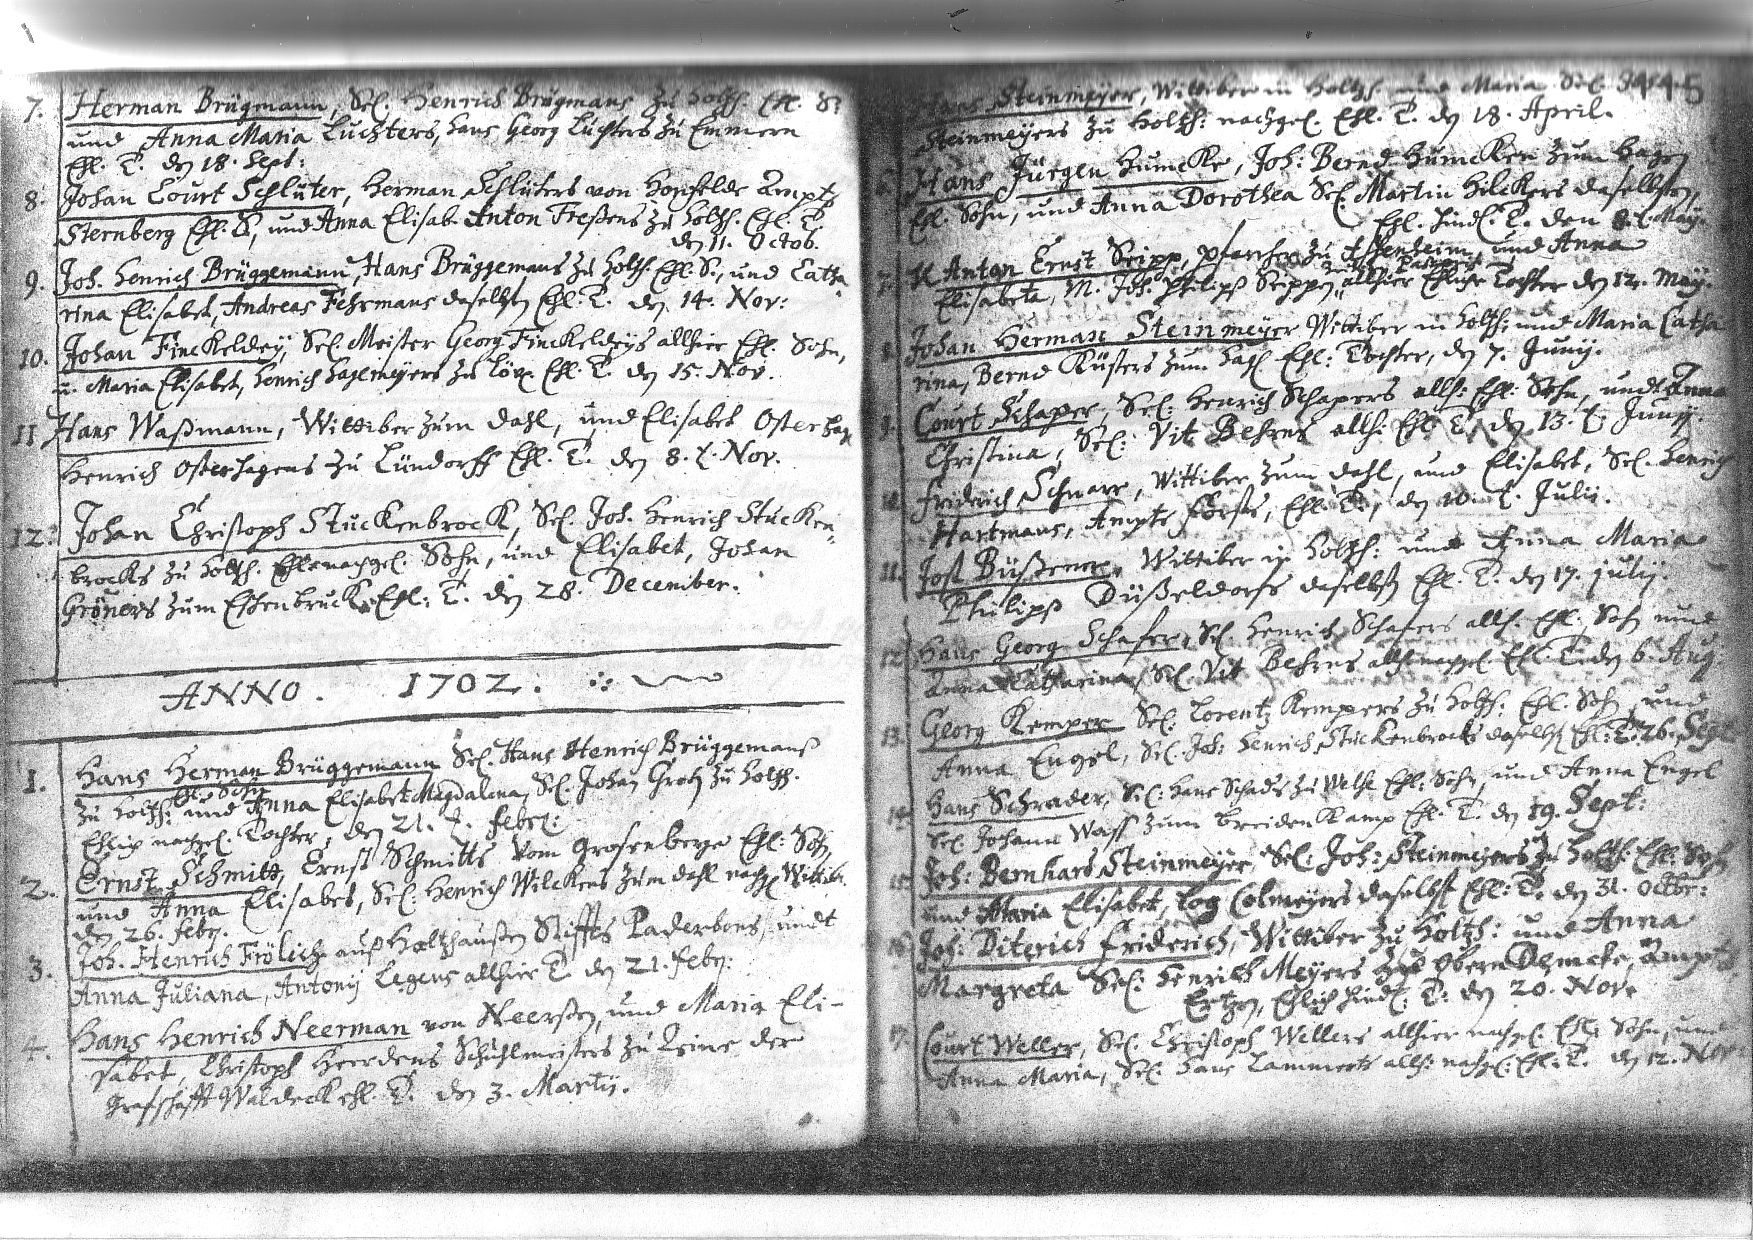 7. Herman Brügmann, Sel. Henrich Brügmans zu Holtzh. Ehl. S.
und Anna Maria Lüchters, Hans Georg Lüchters zu Emmern
Ehl. T. den 18. Sept:
8. Johan Court Schlüter, Herman Schlüters von Honfelde Ampts
Sternberg Ehl. S, und Anna Elisab. Anton Freßens zu Holtzh. Ehl. T.
den 11. Octob.
9. Joh. Henrich Brüggemann, Hans Brüggemans zu Holtzh. Ehl. S., und Catha
rina Elisabet, Andreas Fehrmans daselbsten Ehl. T. den 14. Nov:
10. Johan Finckeldey, Sel. Meister Georg Finckeldeys allhier Ehl. Sohn,
u. Maria Elisabet, Henrich Hagemeyers zu Ehl. T. den 15. Nov.
11 Hans Waßmann, Wittiber zum Dahl, und Elisabet Osterhag
Henrich Osterhagens zu Lündorff Ehl. T. den 8. Nov.
12. Johan Christoph Stuckenbrock, Sel. Joh. Henrich Stucken
brocks zu Holtzh. Ehl. nachgel. Sohn, und Elisabet, Johan
Gröners zum Eschenbruck Ehl: T. den 28. December.
ANNO. 1702.
1. Hans Herman Brüggemann Sel. Hans Henrich Brüggemans
Ehl. Sohn
zu Holtzh: und Anna Elisabet Magdalena, Sel. Johan zu Holtzh.
Ehlig nachgel. Tochter, den 21. Febr:
2. Ernst Schmitt, Ernst Schmitts vom Grosenberge Ehl: Sohn
und Anna Elisabet, Sel: Henrich Wilckens zum Dahl nachgel Wittibe.
den 26. Febr.
3. Joh. Henrich Frölich auß Holtzhaußen Stiffts Paderborns, undt
Anna Juliana, Antony Legens allhier T den 21. Febr:
4. Hans Henrich Neerman von Neersen, und Maria Eli-
sabet, Christoph Heerdens Schuhlmeisters zu der
Grafschafft Waldeck ehl. T. den 3. Martij.
445
Hans Steinmeyer, Wittiber in Holtzh. und Maria Sel.
Steinmeyers zu Holtzh: nachgel. Ehl. T. den 18. April.
6. Hans Jürgen Humcke, Joh: Bernd Humcken zum Hagen
Ehl. Sohn, und Anna Dorothea Sel. Martin Hilckers daselbsten,
Ehl. hindl. T. den 8. May.
7. H Anton Ernst Seipp, Pfarrher zu und Anna
Elisabeta, M. Joh. Philipß Seippen allhier Ehliche Tochter den 12. May.
8. Johan Herman Steinmeyer Wittiber in Holtzh: und Maria Catha
rina, Bernd Küsters zum Hag. Ehl: Tochter, den 7. Junij.
9. Court Schaper, Sel: Henrich Schapers allh: Ehl: Sohn, undt Anna
Christina, Sel: Vit Behrens allh: Ehl T. den 13. Junij.
10. Fridrich Schnarr, Wittiber zum Dahl, und Elisabet, Sel. Henrich
Hartmans, Ampts Ehl. T., den 10. Julii.
11. Jost Büßener, Wittiber in Holtzh: und Anna Maria
Philipß Düßeldorfs daselbst Ehl. T. den 17. Julij.
12. Hans Georg Schafer, Sel. Henrich Schafers allh. Ehl. Sohn und
Anna Catharina, Sel. Vit Behrens allh. nachgel. Ehl. T. den 6. Aug.
13. Georg Kemper Sel: Lorentz Kempers zu Holtzh: Ehl. Sohn, und
Anna Engel, Sel. Joh: Henrich Stuckenbrocks daselbst Ehl: T. 26. Sept.
14. Hans Schrader, Sel: Hans Schads zu Welse Ehl: Sohn, und Anna Engel
Sel Johann Wass zum Breidenkamp Ehl. T. den 19. Sept:
15. Joh: Bernhard Steinmeyer, Sel: Joh: Steinmeyers zu Holtzh: Ehl. Sohn
und Maria Elisabet, Colmeyers daselbst Ehl: T. den 31. Octbr:
16. Joh: Diterich Friderich, Wittiber zu Holtzh: und Anna
Margreta Sel: Henrich Meyers zu Obern Ampts
Ertzen, Ehlich hindl: T. den 20. Nov.
17. Court Weller, Sel. Christoph Wellers allhier nachgel. Ehl. Sohn, und
Anna Maria, Sel: Hans Lammerts allh: nachgel: Ehl: T. den 12. Nov.